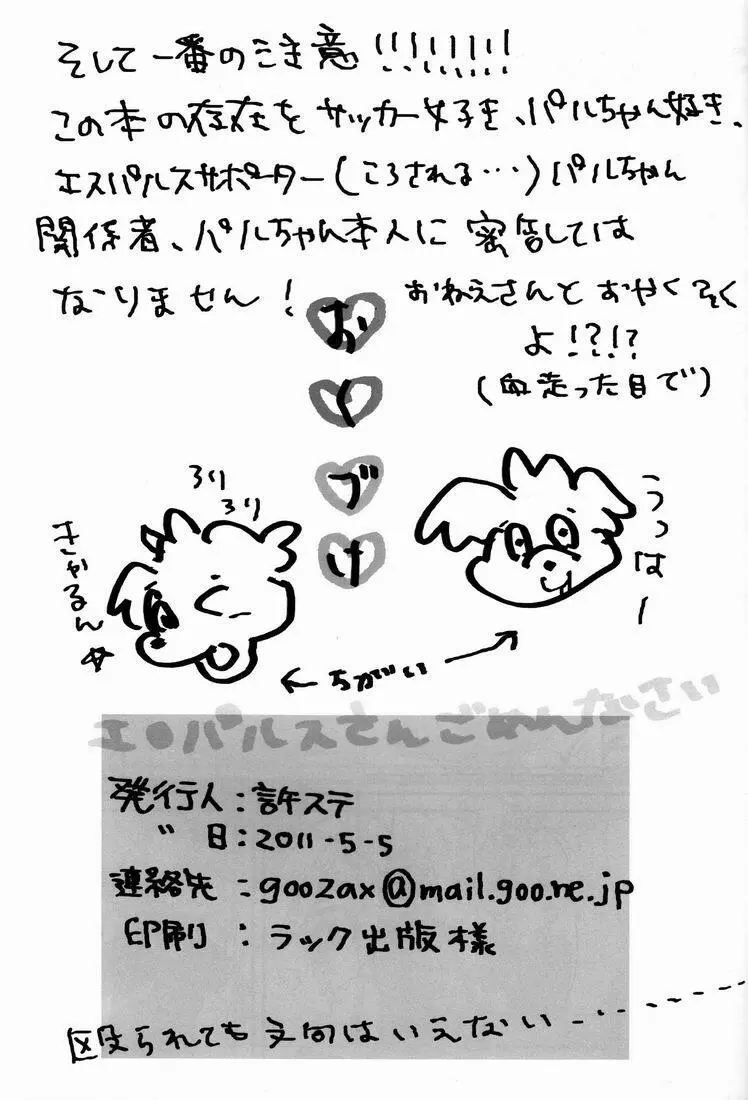 そして一番のご注意!!!!!!!!
この本の存在をサッカー好き、パルちゃん好き、
エスパルスサポーター(ころされる…)パルちゃん
関係者、パルちゃん本人に密告しては
なりません!
おねえさんとおやくそく
よ!?!?
(血走った目で)
おくづけ
ろり
ろり
きゃるん☆
うっはー
←ちがい→
エ●パルスさんごめんなさい
発行人:許ステ
〃 日:2011-5-5
連絡先:goozax@mail.goo.ne.jp
印刷:ラック出版様
殴られても文句はいえない---------